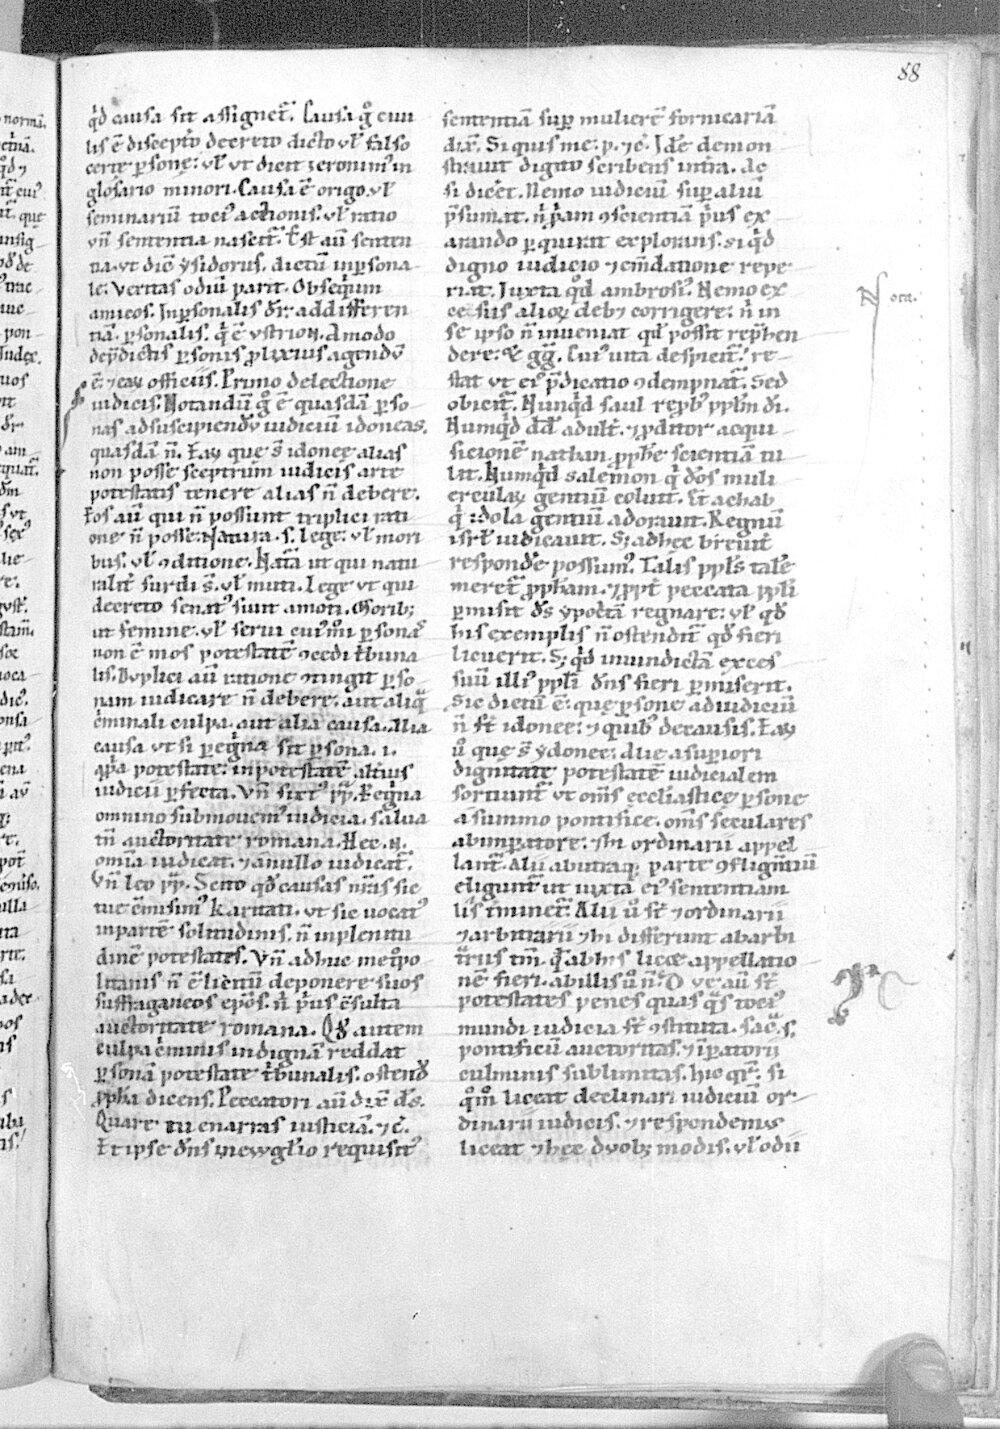 88
qͥd causa sit assignet᷑. Causa gͦ ciui
lis ē discepto᷑ decreto dicto vł falso
certe ꝑsone: vł vt dicit ieronimꝰ in
glosario minori. Causa ē origo. vł
seminariū tociꝰ actionis. vł ratio
vn̄ sententia nascit᷑. Est aū senten
tia. vt dic̄ ysidorus. dictū inpersona
le. Veritas odiū parit. Obsequium
amicos. Inpersonalis dr̄. ad differen
tiā. ꝑsonalis. q̄ ē ystrion. Amodo
depdictis ꝑsonis ꝓlixius agendū
ē. ⁊ eaꝝ officiis. Primo delectione
iudicis. Notandū gͦ ē quasdā ꝑso
nas ad suscipiendū iudiciū idoneas.
quasdā n̄. Eaꝝ que s̄ idonee alias
non posse sceptrum iudicis arte
potestatis tenere alias n̄ debere.
Eos aū qui n̄ possunt triplici rati
one n̄ posse: Natura. s. lege: vł mori
bus. vł ꝯditione. Natā ut qui natu
ralit᷑ surdi s̄. vł muti. Lege vt qui
decreto senatꝰ sunt amoti. Morib;
ut femine. vł serui
non ē mos potestatē ꝯcedi tͥbuna
lis. Duplici aū ratione ꝯtingit ꝑso
nam iudicare n̄ debere. aut aliqᵃ
cͥminali culpa. aut alia causa. Alia
causa vt si peregͥna sit ꝑsona. i.
potestate: in potestatē altius
iudiciū ꝑfecta. Vn̄ sixtꝰ pp̄. Peregͥna
omnino submouemꝰ iudicia. salua
tn̄ auctoritate romana. Hec. n.
omīa iudicat. ⁊ anullo iudicat᷑.
Vn̄ leo pp̄. Scito qd̄ causas nr̄as sic
tue cōmisimꝰ karitati. vt sic uocatꝰ
in partē solitudinis. n̄ in plenitu
dinē potestates. Vn̄ adhuc met᷑po
litanis n̄ ē licitū deponere suos
suffraganeos ep̄os. n̄ pͥus cōsulta
auctoritate romana. Qd̄ autem
culpa cͥminis indignā reddat
ꝑsonā potestate tͥbunalis. ostend᷑
ꝓpha dicens. Peccatori aū dix̄ ds̄.
Quare tu enarras iusticia. ⁊c̄.
Et ipse dn̄s in ewgłio requisitꝰ
sententiā sup̄ mulierē fornicariā
dix̄. Si quis me: p. ⁊c̄. Id̄e demon
strauit digito scribens in tr̄a. Ac
si dicēt. Nemo iudiciū sup̄ aliū
p̄sumat. n̄ pͥam ꝯscientiā pͥus ex
arando ꝑquirat explorans. si qͥd
digno iudicio ⁊ em̄datione repe
riat. Juxta qd̄ ambrosiꝰ. Nemo ex
cessus alioꝝ deb; corrigere: n̄ in
se ipso n̄ inueniat qd̄ possit rep̄hen
dere: Et gg̅. Cuiꝰ uita despicit᷑. re
stat vt eiꝰ p̄dicatio ꝯdempnat᷑. Sed
obicit᷑. Nunqͥd saul repbꝰ pplm̄ di.
Nunqͥd dd̄ adult᷑. ⁊ ꝓditor acqui
sicionē nathan ꝓph̄e scientiā tu
lit. Nunqͥd salemon qͥ d̄os muli
ercularꝝ gentiū coluit. Et achab
qͥ idola gentiū adorauit. Regnū
isrł iudicauit. S; ad hec breuit᷑
respondere possumꝰ. Talis ppls̄ tale
meret᷑ ꝓpham. ⁊ ꝓpt᷑ peccata ppłi
ꝑmisit ds̄ ypoctā regnare: vł qd̄
his exemplis n̄ ostendit᷑ qd̄ fieri
licuerit. S; qͥd in uindictā exces
suū illiꝰ ppłi dn̄s fieri ꝑmiserit.
Sic dictū ē: que ꝑsone ad iudiciū
n̄ st̄ idonee: ⁊ quibꝰ decausis. Eaꝝ
ū que s̄ ydonee: due a supiori
dignitate potestatē iudicialem
sortiunt᷑ vt om̄s eccliastice ꝑsone
a summo pontifice. om̄s seculares
ab imꝑatore: ⁊ hi ordinarii appel
lant᷑. Alii ab utraq; parte ꝯfligentiū
eligunt᷑ ut iuxta eiꝰ sententiam
lis tͥminet᷑. Alii ū st̄ ⁊ ordinarii
⁊ arbitrarii ⁊ hi differunt abarbi
trͥus tm̄. qͥa ab his licet appellatio
nē fieri. ab illis ū n̄.
potestates penes quas qͣs tociꝰ
mundi iudicia st̄ ꝯstituta. sac̄. s.
pontificū auctoritas. ⁊ imꝑatorii
culminis sublimitas. hic qr̄. si
qͦmͦ liceat declinari iudiciū or-
dinarii iudicis. ⁊ respondemꝰ
liceat ⁊ hec duob; modis. vł odii
Nota.